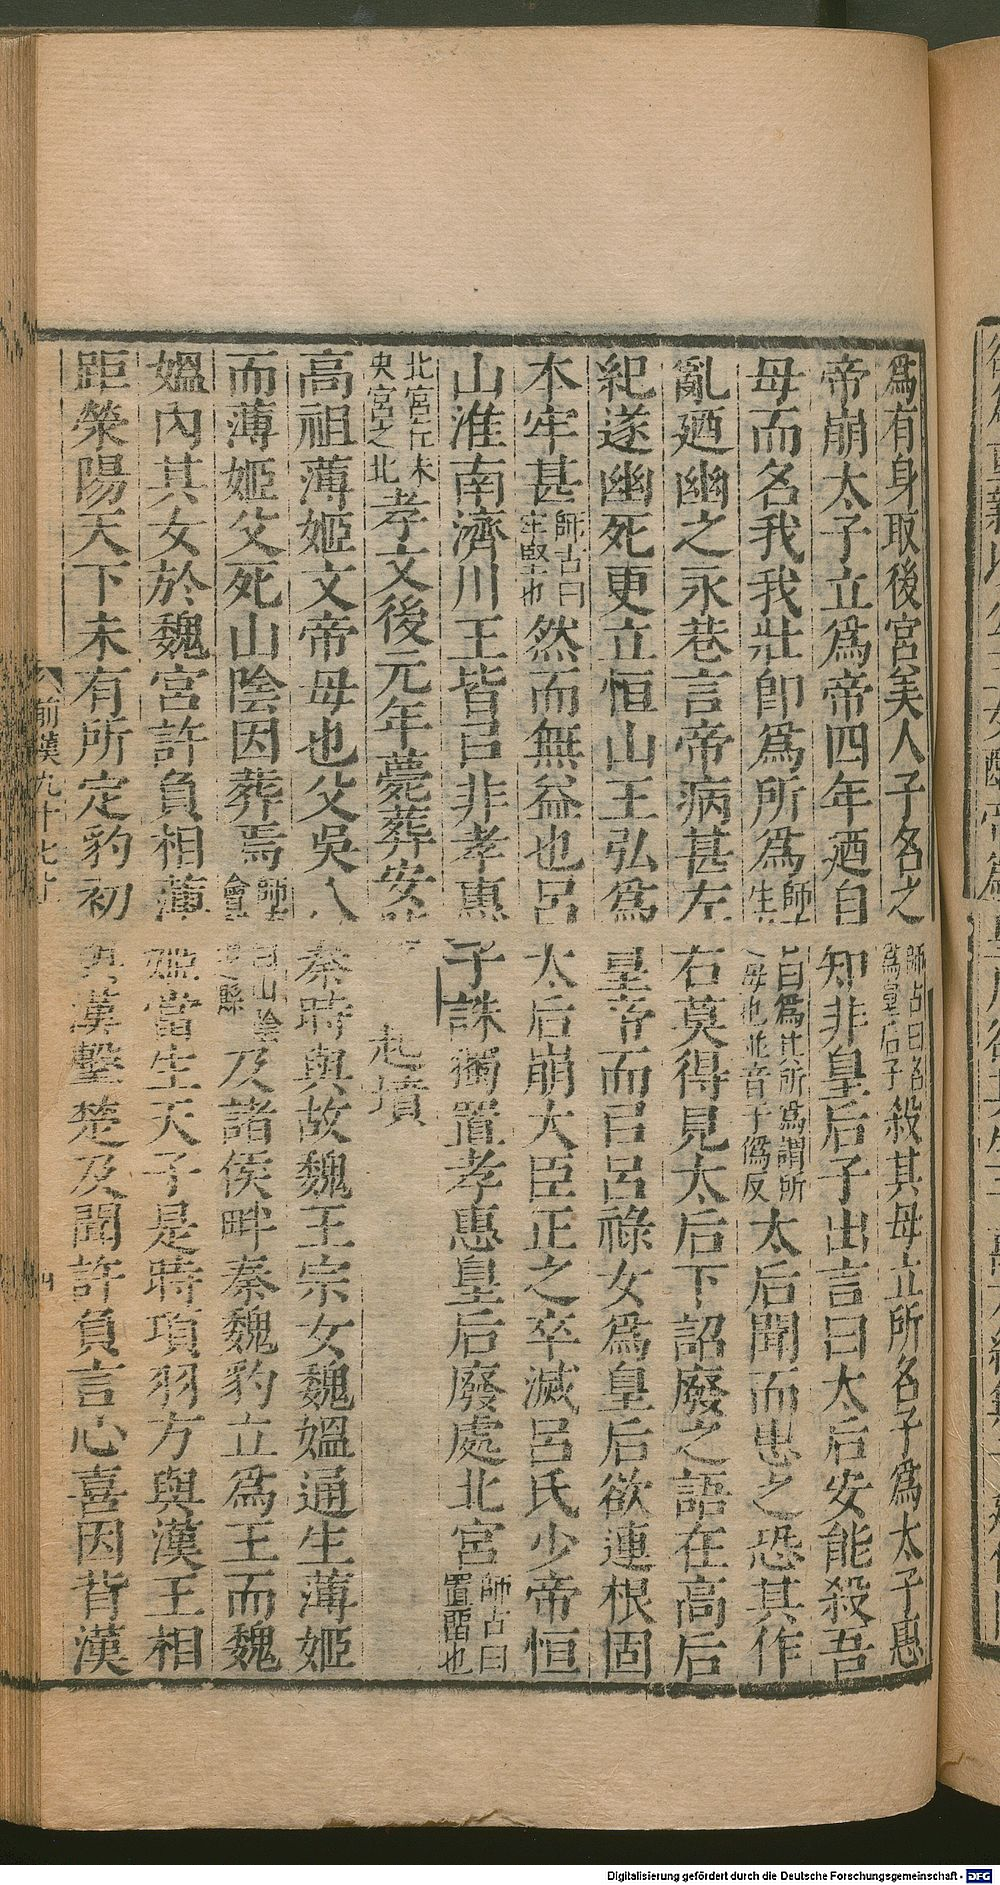 爲有身取後宮美人子名之師古曰名爲皇后子殺其母立所名子爲太子惠
帝崩太子立爲帝四年廼自知非皇后子出言曰太后安能殺吾
母而名我我壯卽爲所爲師生曰爲其所爲謂所母也並音于僞反太后聞而患之恐其作
亂廼幽之永巷言帝病甚左右莫得見太后下詔廢之語在高后
紀遂幽死更立恒山王弘爲皇帝而㠯呂祿女爲皇后欲連根固
本牢甚師古曰牢堅也然而無益也呂太后崩大臣正之卒滅呂氏少帝恒
山淮南濟川王皆㠯非孝惠子誅獨置孝惠皇后廢處北宮師古曰置畱也
北宮在未央宮之北孝文後元年薨葬安起墳
高祖薄姬文帝母也父吳人秦時與故魏王宗女魏媼通生薄姬
而薄姬父死山陰因葬焉師會曰山陰之縣及諸侯畔秦魏豹立爲王而魏
媼內其女於魏宮許負相薄姬當生天子是時項羽方與漢王相
距滎陽天下未有所定豹初與漢擊楚及聞許負言心喜因背漢
前漢九十七上
四
Digitalisierung gefördert durch die Deutsche Forschungsgemeinschaft - DFG